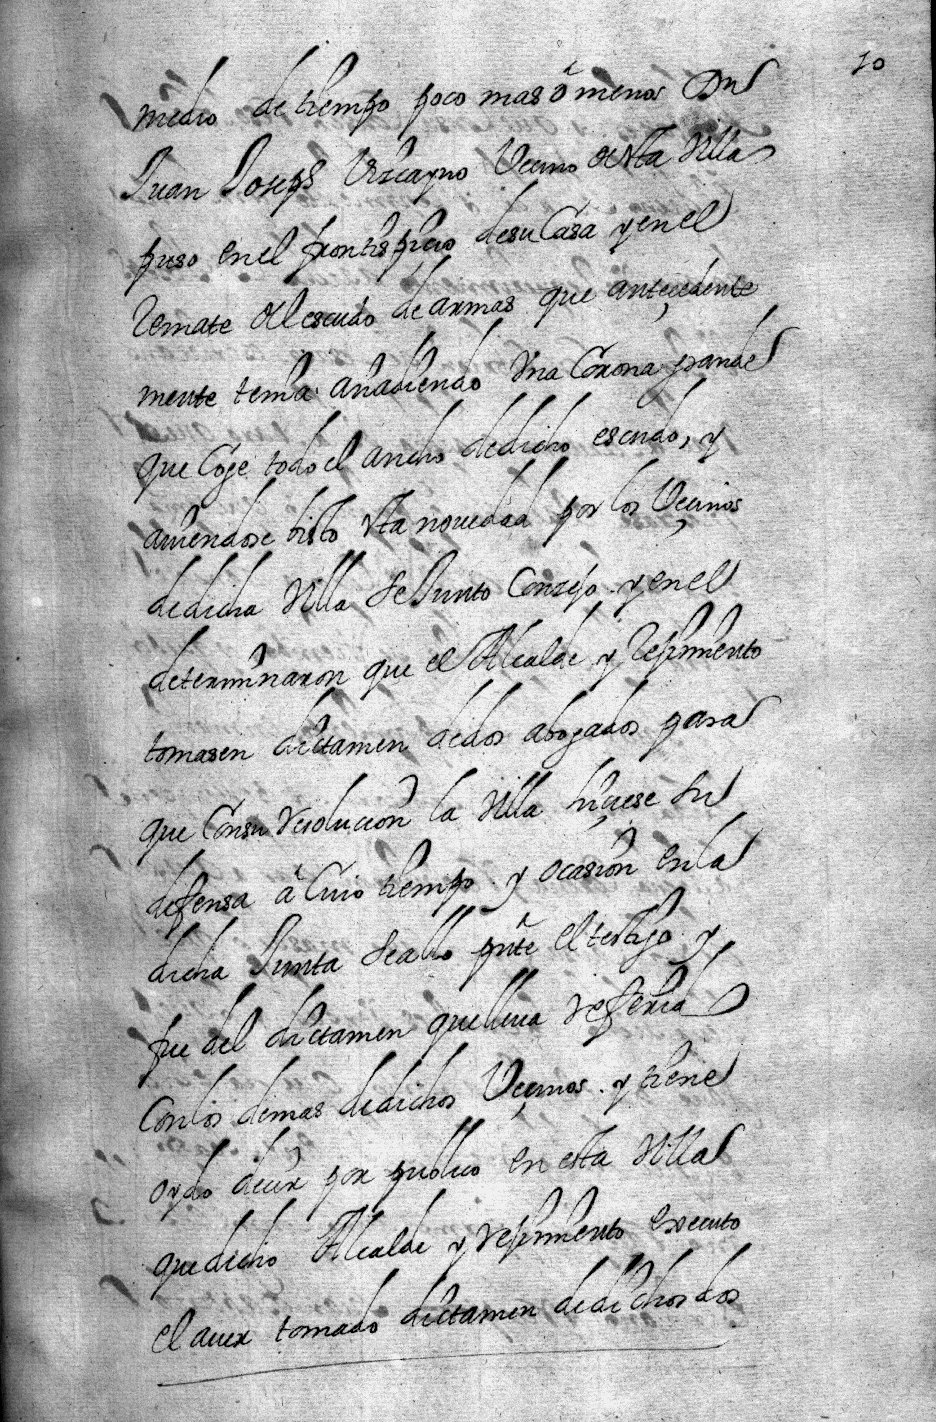 10
medio de tiempo poco mas ô menos Dn
Juan Joseph Vizcayno Vecino desta Villa
puso en el frontispicio desu Casa y en el
Remate del escudo de armas que antezedente
mente tenia añadiendo Vna Corona grande
que Coge todo el ancho de dicho escudo, y
auiendose visto esta nouedad por los Vezinos
de dicha Villa Se Junto Conzejo y en el
determinaron que el Alcalde y Regimiento
tomasen dictamen de dos abogados para
que Consu Resolucion la Villa hiziese su
defensa â Cuio tiempo y ocasion en la
dicha Junta se allo pnte el testigo y
fue del dictamen que lleua Referido
Con los demas de dichos Vezinos y tiene
oydo decir por publico en esta Villa
que dicho Alcalde y regimiento executo
el auer tomado dictamen de dichos dos